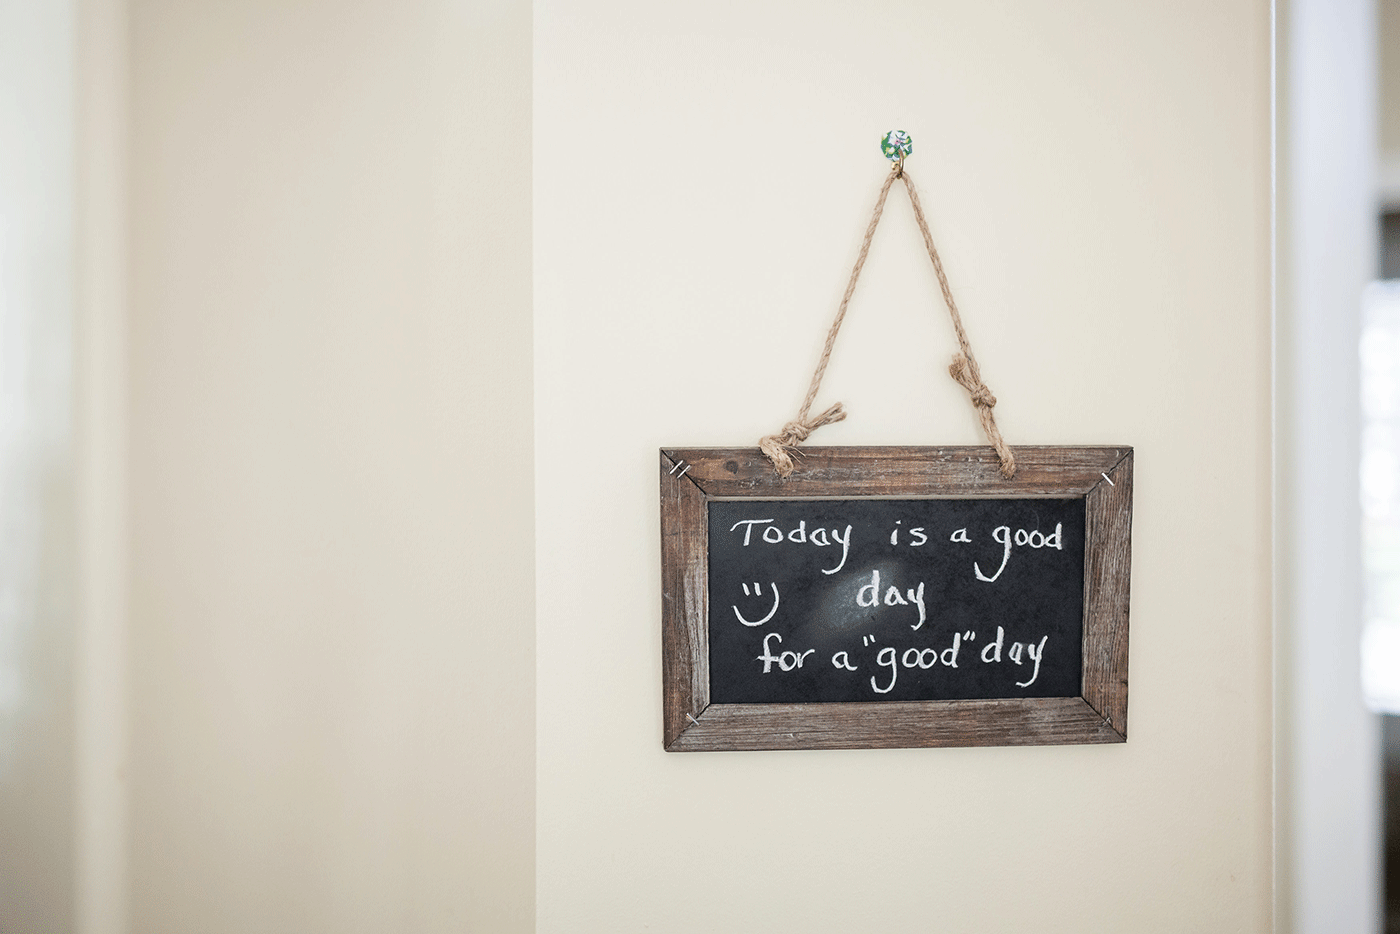 Today is a good
day
for a "good" day